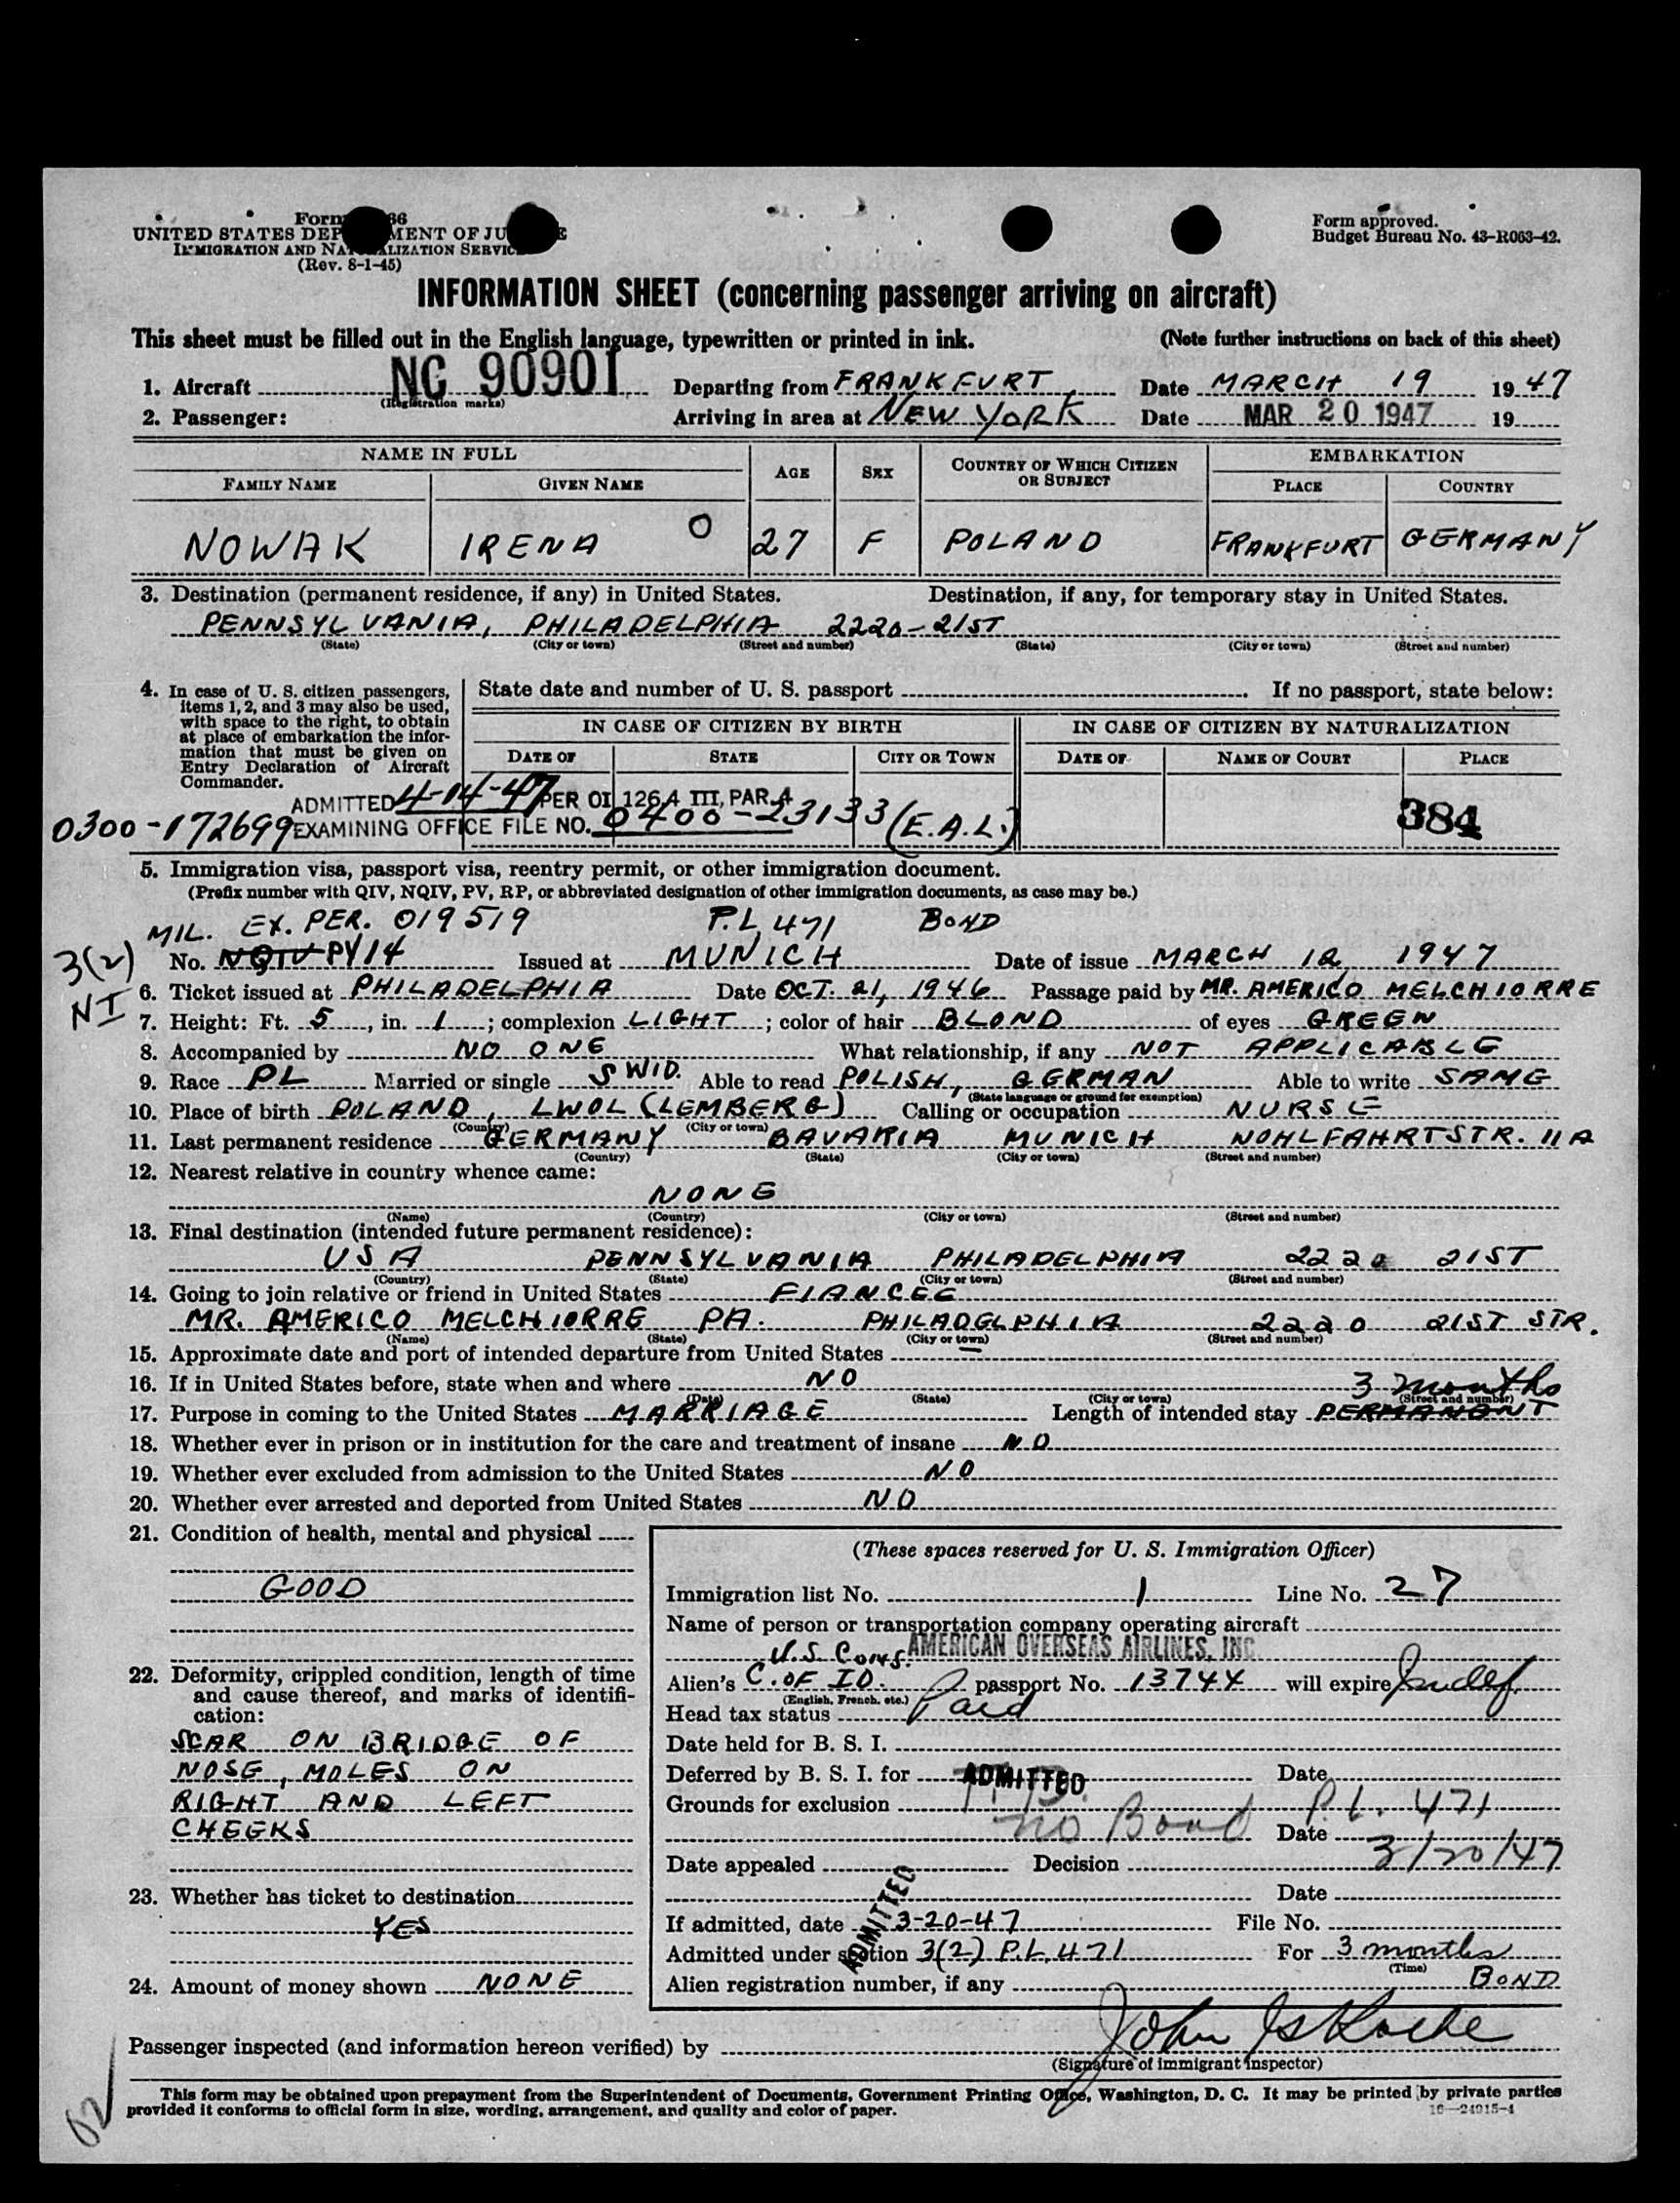 Form 66
UNITED STATES DEP MENT OF JU E
IMMIGRATION AND NA ALIZATION SERVIC
(Rev. 8-1-45)
Form approved.
Budget Bureau No. 43-R063-42.
INFORMATION SHEET (concerning passenger arriving on aircraft)
This sheet must be filled out in the English language, typewritten or printed in ink. (Note further instructions on back of this sheet)
1. Aircraft NC 90901 Departing from FRANKFURT Date MARCH 19 1947
(Registration marks)
2. Passenger: Arriving in area at NEW YORK Date MAR 20 1947 19
NAME IN FULL AGE SEX COUNTRY OF WHICH CITIZEN OR SUBJECT EMBARKATION
FAMILY NAME GIVEN NAME PLACE COUNTRY
NOWAK IRENA O 27 F POLAND FRANKFURT GERMANY
3. Destination (permanent residence, if any) in United States. Destination, if any, for temporary stay in United States.
PENNSYLVANIA, PHILADELPHIA 2220-21ST
(State) (City or town) (Street and number) (State) (City or town) (Street and number)
4. In case of U. S. citizen passengers, items 1, 2, and 3 may also be used, with space to the right, to obtain at place of embarkation the information that must be given on Entry Declaration of Aircraft Commander.
State date and number of U. S. passport . If no passport, state below:
IN CASE OF CITIZEN BY BIRTH IN CASE OF CITIZEN BY NATURALIZATION
DATE OF STATE CITY OR TOWN DATE OF NAME OF COURT PLACE
ADMITTED 4-14-47 PER OI 126.4 III, PAR.4
0300-172699 EXAMINING OFFICE FILE NO. 0400-23133 (E.A.L.) 384
5. Immigration visa, passport visa, reentry permit, or other immigration document.
(Prefix number with QIV, NQIV, PV, RP, or abbreviated designation of other immigration documents, as case may be.)
MIL. EX. PER. 019519 P.L 471 BOND
3(2) No. NQIV PV14 Issued at MUNICH Date of issue MARCH 12 1947
NI 6. Ticket issued at PHILADELPHIA Date OCT. 21, 1946 Passage paid by MR. AMERICO MELCHIORRE
7. Height: Ft. 5, in. 1; complexion LIGHT; color of hair BLOND of eyes GREEN
8. Accompanied by NO ONE What relationship, if any NOT APPLICABLE
9. Race PL Married or single S WID. Able to read POLISH, GERMAN Able to write SAME
(State language or ground for exemption)
10. Place of birth POLAND, LWOL (LEMBERG) Calling or occupation NURSE
(Country) (City or town)
11. Last permanent residence GERMANY BAVARIA MUNICH NOHLFAHRTSTR. 11A
(Country) (State) (City or town) (Street and number)
12. Nearest relative in country whence came:
NONE
(Name) (Country) (City or town) (Street and number)
13. Final destination (intended future permanent residence):
USA PENNSYLVANIA PHILADELPHIA 2220 21ST
(Country) (State) (City or town) (Street and number)
14. Going to join relative or friend in United States FIANCEE
MR. AMERICO MELCHIORRE PA. PHILADELPHIA 2220 21ST STR.
(Name) (State) (City or town) (Street and number)
15. Approximate date and port of intended departure from United States –
16. If in United States before, state when and where NO 3 months
(Date) (State) (City or town) (Street and number)
17. Purpose in coming to the United States MARRIAGE Length of intended stay PERMANONT
18. Whether ever in prison or in institution for the care and treatment of insane NO
19. Whether ever excluded from admission to the United States NO
20. Whether ever arrested and deported from United States NO
21. Condition of health, mental and physical
GOOD
22. Deformity, crippled condition, length of time and cause thereof, and marks of identification:
SCAR ON BRIDGE OF
NOSE, MOLES ON
RIGHT AND LEFT
CHEEKS
23. Whether has ticket to destination
YES
24. Amount of money shown NONE
(These spaces reserved for U. S. Immigration Officer)
Immigration list No. 1 Line No. 27
Name of person or transportation company operating aircraft
U.S. Cons. AMERICAN OVERSEAS AIRLINES, INC.
Alien's C. OF ID. passport No. 13744 will expire Indef
(English, French, etc.)
Head tax status Paid
Date held for B. S. I.
Deferred by B. S. I. for ADMITTED Date
Grounds for exclusion P.L. 471
no Bond Date 3/20/47
Date appealed Decision
Date
ADMITTED
If admitted, date 3-20-47 File No.
Admitted under section 3(2) P.L. 471 For 3 months
(Time)
Alien registration number, if any BOND
Passenger inspected (and information hereon verified) by John
(Signature of immigrant inspector)
This form may be obtained upon prepayment from the Superintendent of Documents, Government Printing Office, Washington, D. C. It may be printed by private parties
provided it conforms to official form in size, wording, arrangement, and quality and color of paper. 16—24915-4